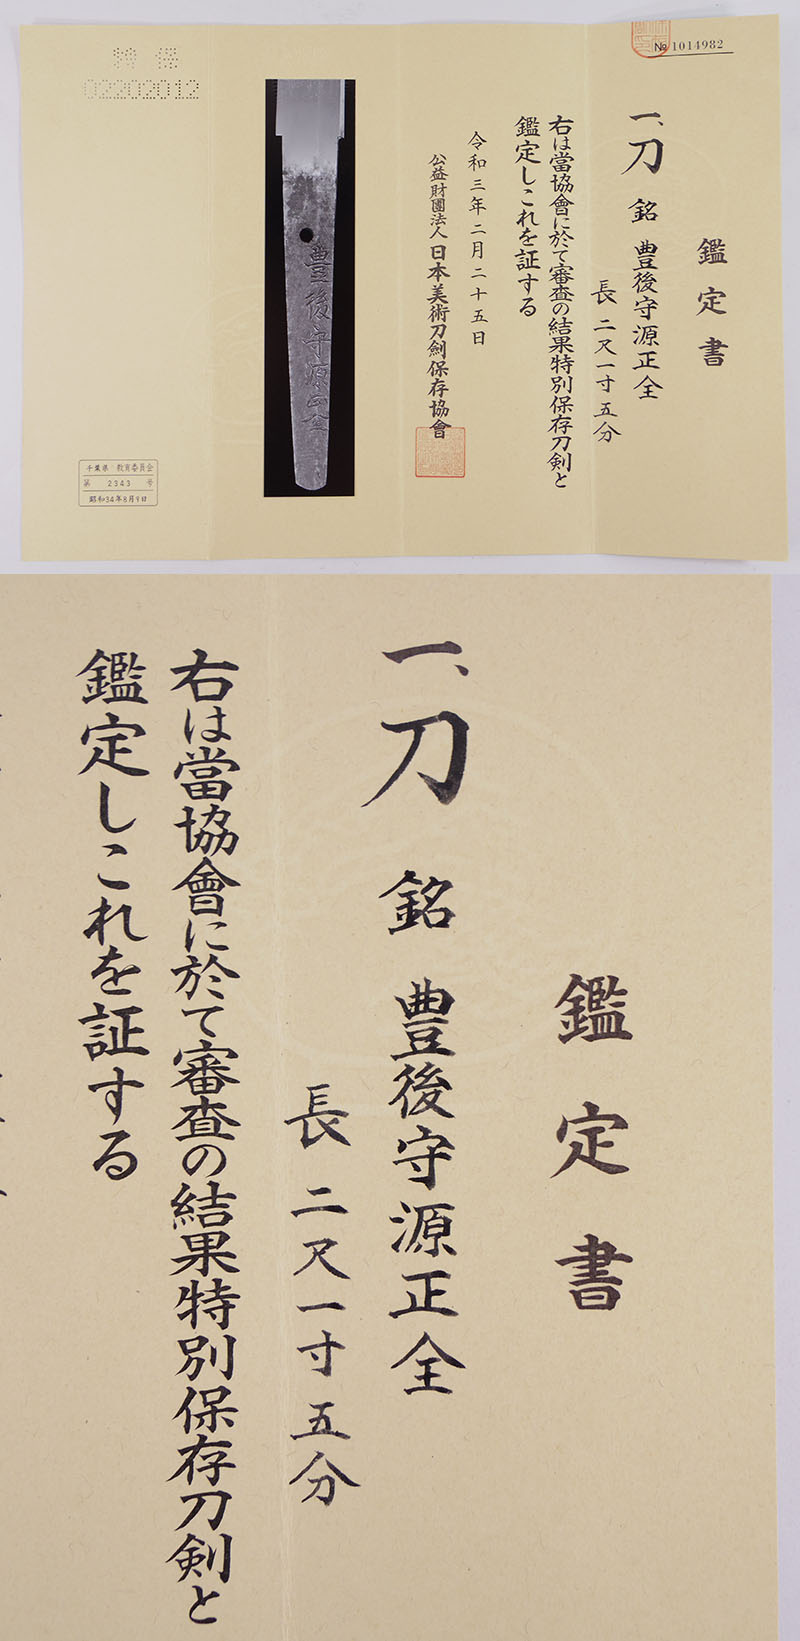 № 1014982
鑑定書
一、刀 銘 豊後守源正全
長 二尺一寸五分
右は當協會に於て審査の結果特別保存刀剣と
鑑定しこれを証する
令和三年二月二十五日
公益財團法人 日本美術刀劍保存協會
豊後守源正全
特保
02202012
千葉県 教育委員会
第 2343 号
昭和34年8月9日
鑑定書
一、刀 銘 豊後守源正全
長 二尺一寸五分
右は當協會に於て審査の結果特別保存刀剣と
鑑定しこれを証する